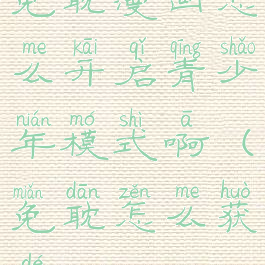 免耽漫画怎
me kāi qǐ qīng shǎo
么开启青少
nián mó shì ā
年模式啊（
miǎn dān zěn me huò
免耽怎么获
dé